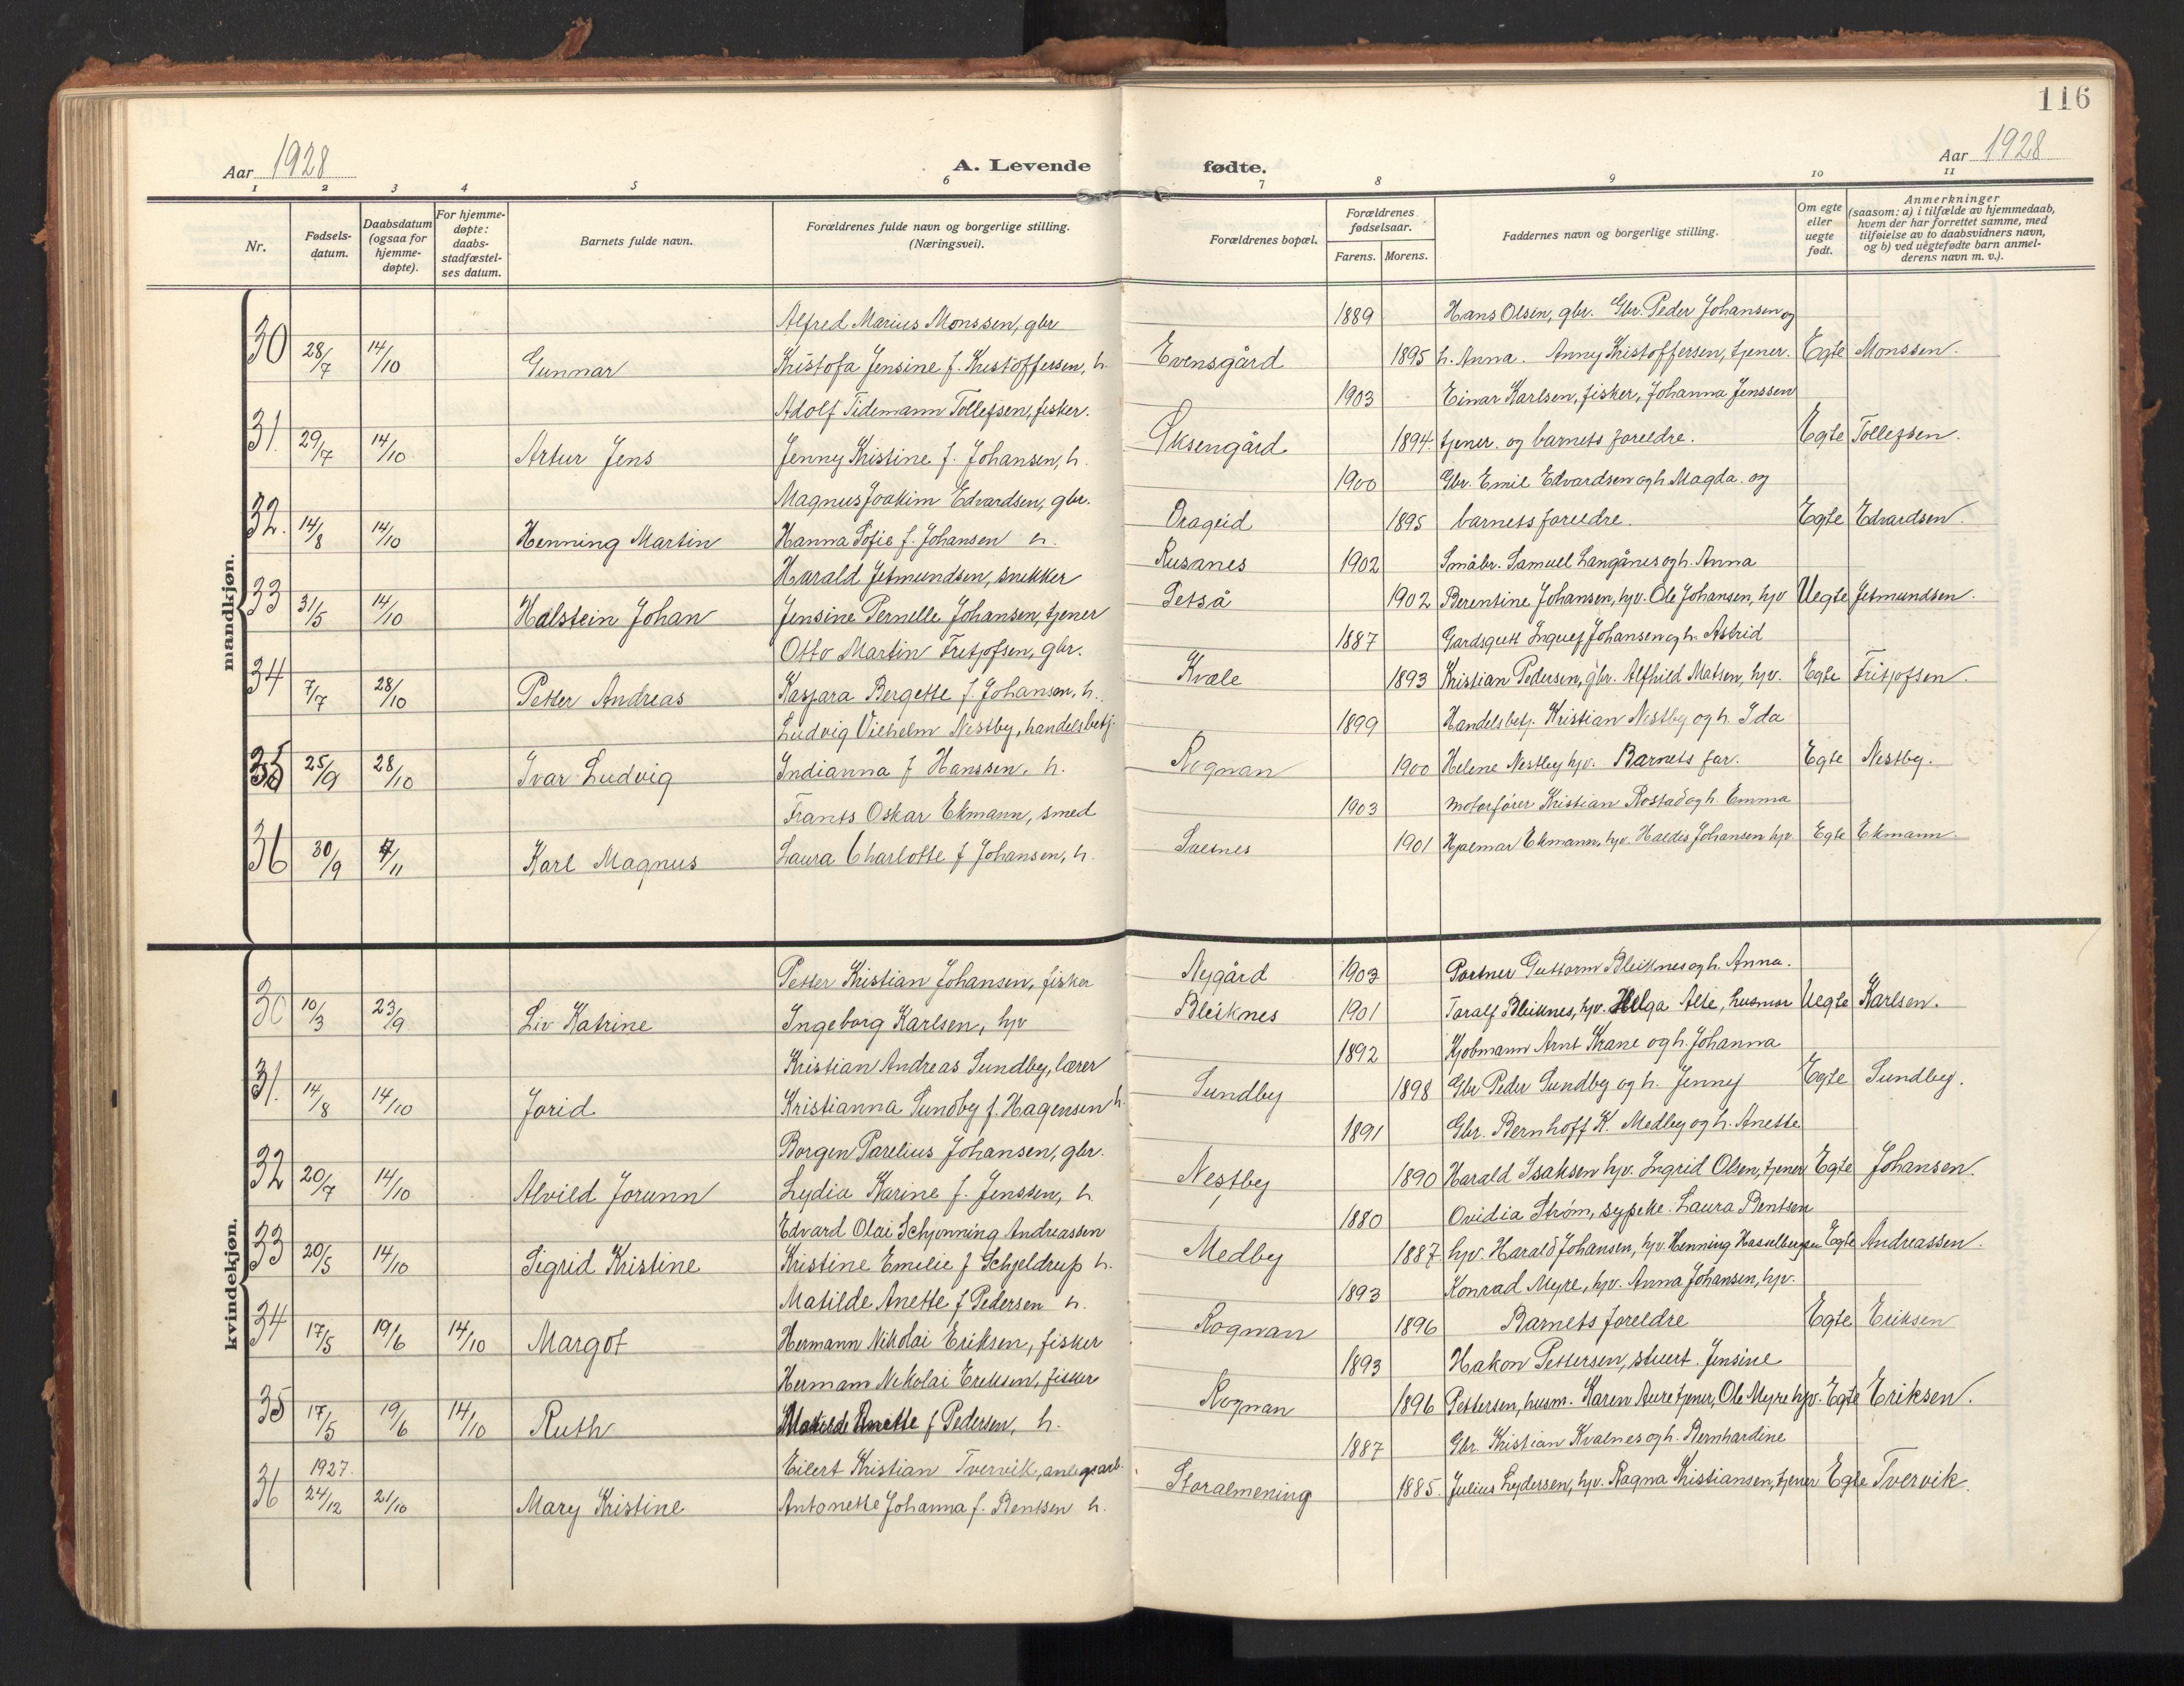 116
Aar 1928
A. Levende fødte.
Aar 1928
1 2 3 4 5 6 7 8 9 10 11
Nr.
Fødsels-
datum.
Daabsdatum
(ogsaa for
hjemme-
døpte).
For hjemme-
døpte:
daabs-
stadfæstel-
ses datum.
Barnets fulde navn.
Forældrenes fulde navn og borgerlige stilling.
(Næringsvei).
Forældrenes bopæl.
Forældrenes
fødselsaar.
Farens. Morens.
Faddernes navn og borgerlige stilling.
Om egte
eller
uegte
født.
Anmerkninger
(saasom: a) i tilfælde av hjemmedaab,
hvem der har forrettet samme, med
tilføielse av to daabsvidners navn,
og b) ved uegtefødte barn anmel-
derens navn m. v.).
mandkjøn.
Alfred Marius Monssen, gbr 1889 Hans Olsen, gbr. Gbr. Peder Johansen og
30 28/7 14/10 Gunnar Kristofa Jensine f. Kristoffersen, h. Evensgård 1895 h. Anna. Anny Kristoffersen, tjener. Egte Monssen.
Adolf Tidemann Tollefsen, fisker. 1903 Einar Karlsen, fisker, Johanna Jenssen
31. 29/7 14/10 Artur Jens Jenny Kristine f. Johansen, h. Oksengård 1894. tjener. og barnets foreldre. Egte Tollefsen.
Magnus Joakim Edvardsen, gbr. 1900 Gbr. Emil Edvardsen og h. Magda. og
32. 14/8 14/10 Henning Martin Hanna Sofie f. Johansen h. Drageid 1895 barnets foreldre. Egte Edvardsen.
Harald Jetmundsen, snekker Rusanes 1902 Småbr. Samuel Langånes og h. Anna
33 31/5 14/10 Halstein Johan Jensine Pernelle Johansen, tjener Setså 1902 Berentine Johansen, hjv. Ole Johansen, hjv Uegte Jetmundsen.
Otto Martin Fritjofsen, gbr. 1887 Gardsgutt Ingulf Johansen og h. Astrid
34 7/7 28/10 Petter Andreas Kaspara Bergette f. Johansen, h. Kvæle 1893 Kristian Pedersen, gbr. Alfhild Matsen, hjv. Egte Fritjofsen.
Ludvig Vilhelm Nestby, handelsbetj. 1899 Handelsbetj. Kristian Nestby og h. Ida
35 25/9 28/10 Ivar Ludvig Indianna f Hanssen, h. Rognan 1900 Helene Nestby hjv. Barnets far. Egte Nestby.
Frants Oskar Ekmann, smed 1903 motorfører Kristian Rostad og h. Emma
36 30/9 4/11 Karl Magnus Laura Charlotte f Johansen, h. Saltnes 1901 Hjalmar Ekmann, hjv. Haldis Johansen hjv. Egte Ekmann
kvindekjøn.
Petter Kristian Johansen, fisker Nygård 1903 Partner Guttorm Bleiknes og h. Anna.
30 10/3 23/9 Liv Katrine Ingeborg Karlsen, hjv Bleiknes 1901 Toralf Bleiknes, hjv. Helga Alte, husmor Uegte Karlsen.
Kristian Andreas Sundby, lærer 1892 Kjøbmann Arnt Krane og h. Johanna
31. 14/8 14/10 Jorid Kristianna Sundby f. Hagensen h. Sundby 1898 Gbr Peder Sundby og h. Jenny Egte Sundby.
Borgen Parelius Johansen, gbr. 1891 Gbr. Bernhoff K. Medby og h. Anette
32 20/7 14/10 Alvild Jorunn Lydia Karine f. Jenssen, h. Nestby 1890 Harald Isaksen hjv. Ingrid Olsen, tjener Egte Johansen.
Edvard Olai Schjønning Andreassen 1880 Ovidia Strøm, sypike. Laura Bentsen
33 20/5 14/10 Sigrid Kristine Kristine Emelie f Schjeldrup h. Medby 1887 hjv. Harald Johansen, hjv. Henning Hasselbergsen Egte Andreassen.
Matilde Anette f Pedersen h. 1893 Konrad Myre, hjv. Anna Johansen, hjv.
34 17/5 19/6 14/10 Margot Hermann Nikolai Eriksen, fisker Rognan 1896 Barnets foreldre Egte Eriksen
Hermann Nikolai Eriksen, fisker 1893 Hakon Pettersen, stuert. Jensine
35 17/5 19/6 14/10 Ruth Matilde Anette f Pedersen, h. Rognan 1896 Pettersen, husm. Karen Aure tjener, Ole Myre hjv. Egte Eriksen.
1927. Eilert Kristian Tvervik, anlegsarb. 1887 Gbr. Kristian Kvalnes og h. Bernhardine
36 24/12 21/10 Mary Kristine Antonette Johanna f. Bentsen h. Storalmening 1885. Julius Lydersen, hjv. Ragna Kristiansen, tjener Egte Tvervik.